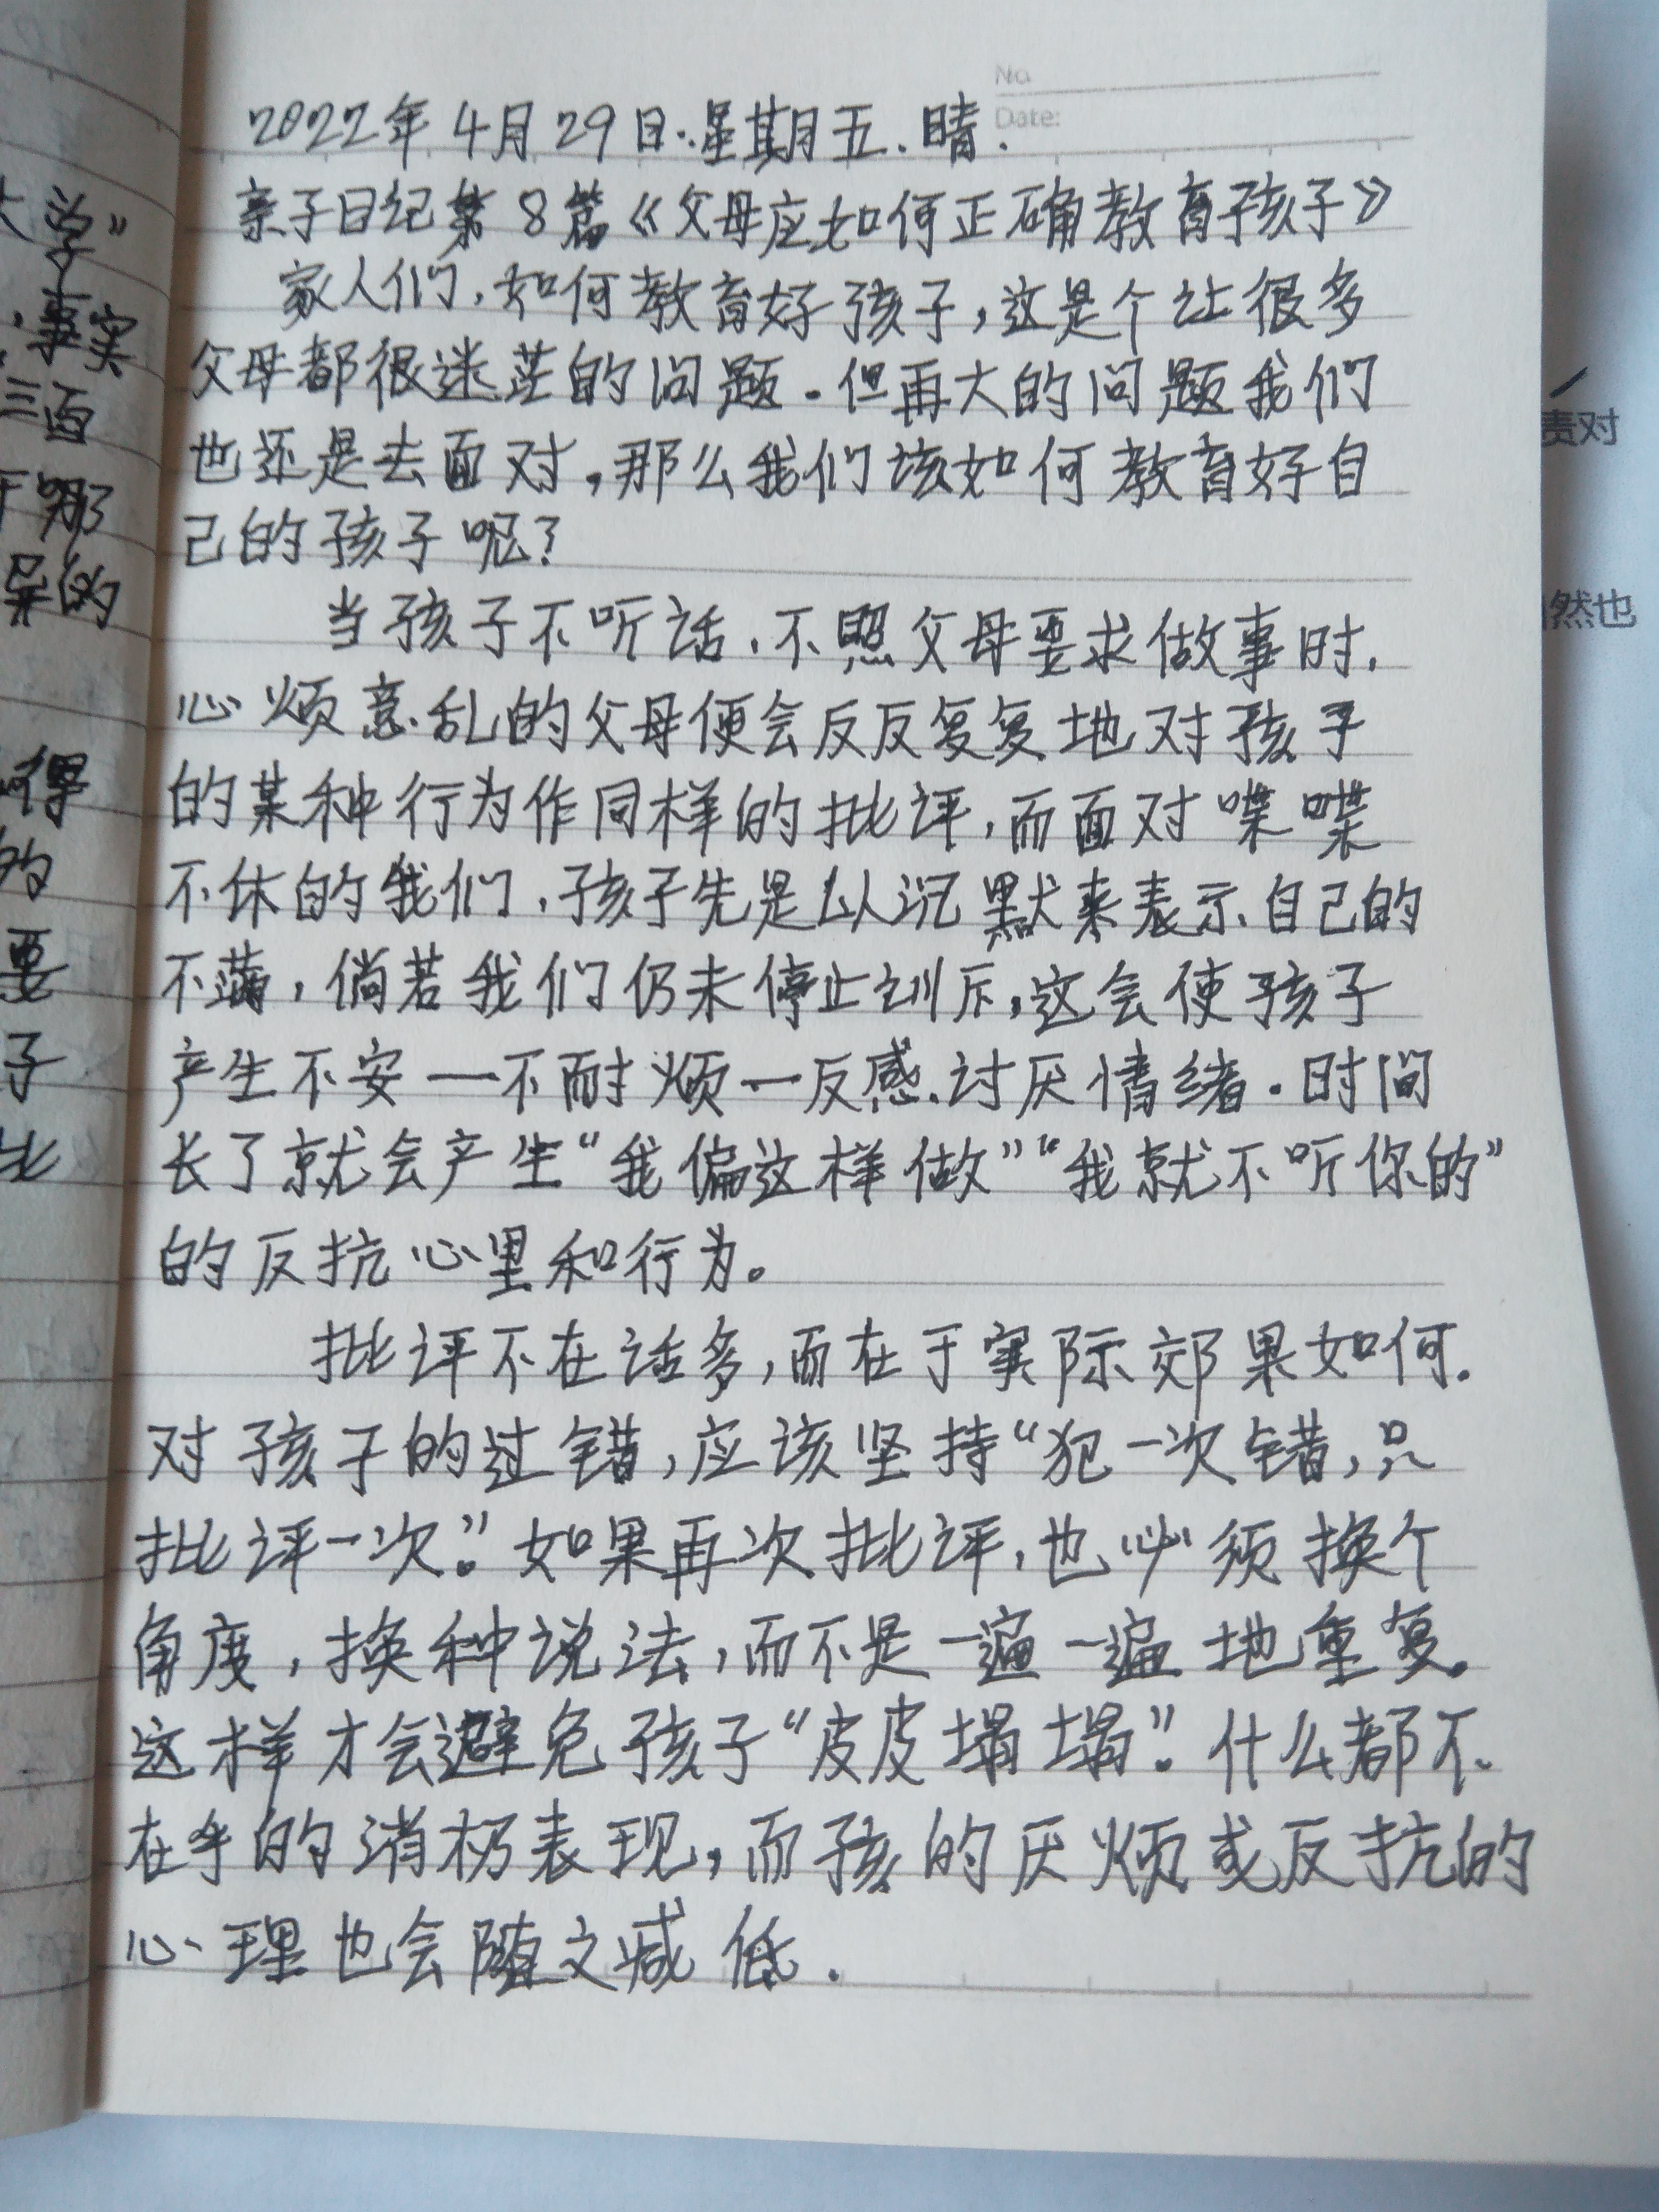 No.
Date:
2022年4月29日.星期五.晴.
亲子日纪第8篇《父母应如何正确教育孩子》
家人们,如何教育好孩子,这是个让很多
父母都很迷茫的问题.但再大的问题我们
也还是去面对,那么我们该如何教育好自
己的孩子呢?
当孩子不听话,不照父母要求做事时,
心烦意乱的父母便会反反复复地对孩子
的某种行为作同样的批评,而面对喋喋
不休的我们,孩子先是以沉默来表示自己的
不满,倘若我们仍未停止训斥,这会使孩子
产生不安一不耐烦一反感.讨厌情绪.时间
长了就会产生“我偏这样做”“我就不听你的”
的反抗心里和行为。
批评不在话多,而在于实际效果如何.
对孩子的过错,应该坚持“犯一次错,只
批评一次”。如果再次批评,也必须换个
角度,换种说法,而不是一遍一遍地重复。
这样才会避免孩子“皮皮塌塌”。什么都不
在乎的消极表现,而孩的厌烦或反抗的
心理也会随之减低.
大学”
事实
三百
那
的
得
的
要
子
比
责对
然也